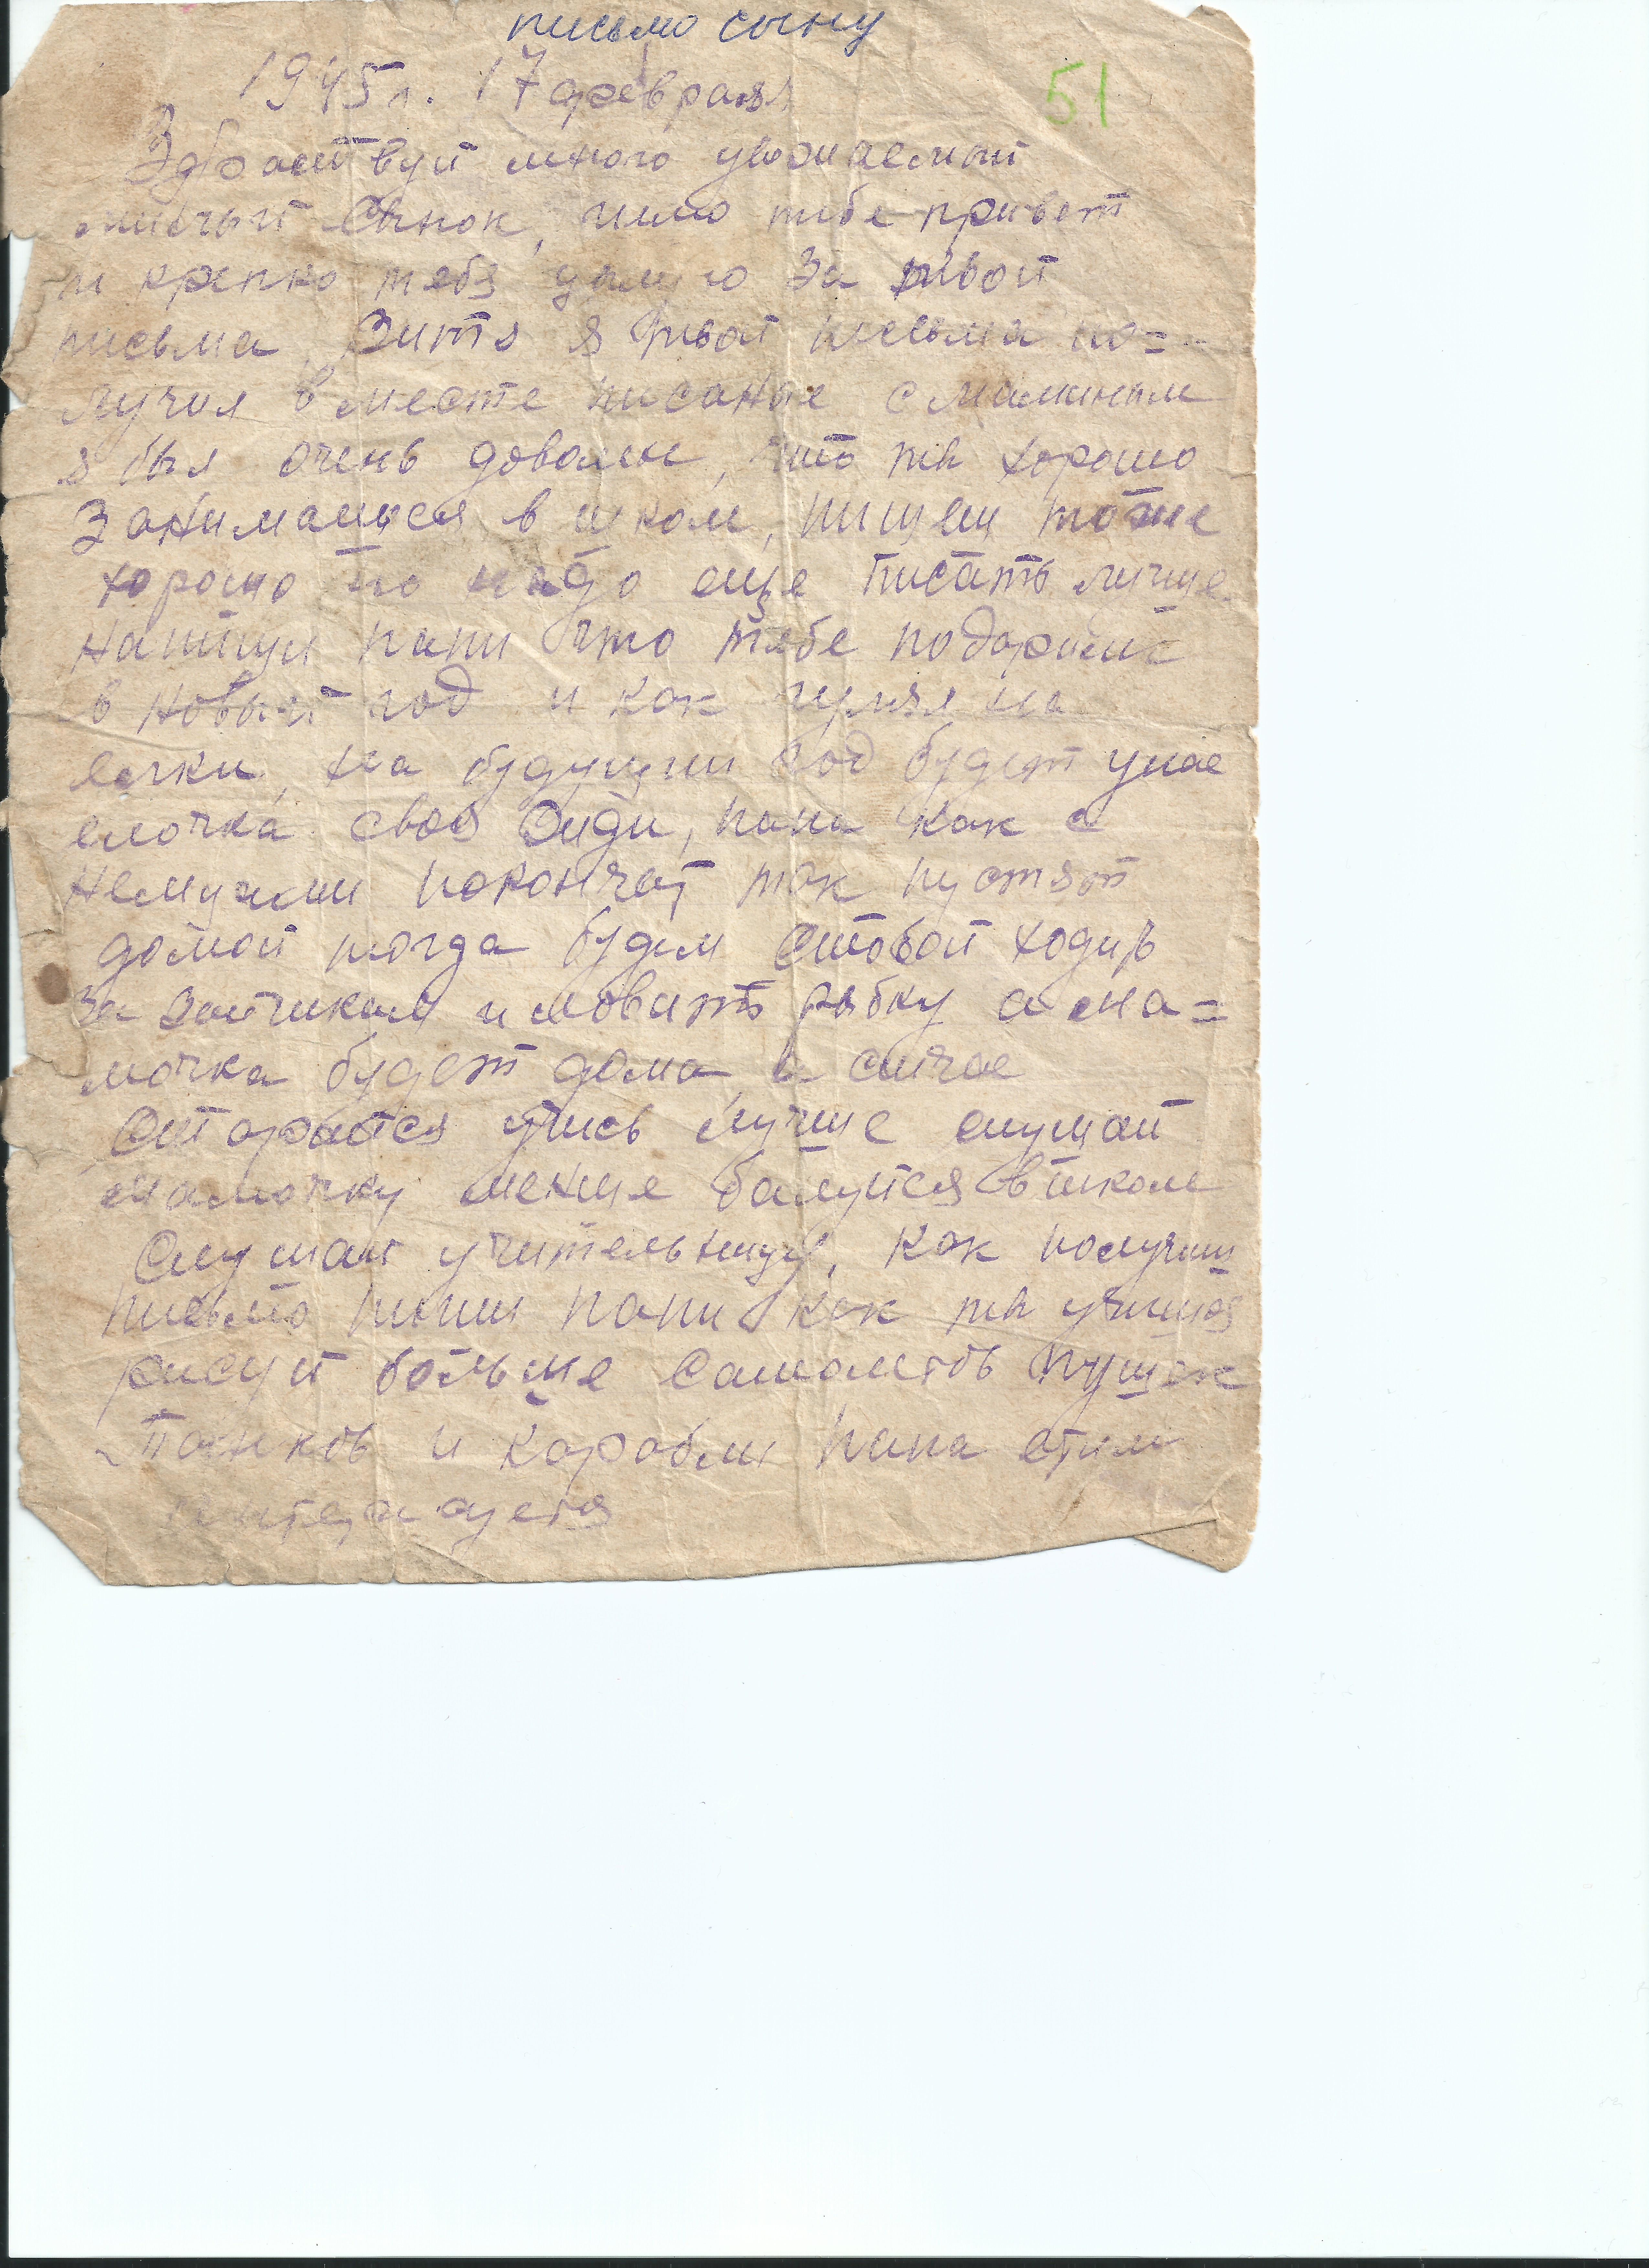 письмо сыну
1945 г. 17 февраля
51
Здраствуй много уважаемый
милый Сынок, шлю тебе привет
и крепко тебя целую за твои
письма, Витя я твои письма по=
лучил вместе писаные с маминым
я был очень доволен, что ты хорошо
Занимаешся в школе, пишеш тоже
хорошо но надо еще писать лучше.
Напиши папи что тебе подарили
в новый год и как гулял на
елки, на будущий год будет у нас
елочка своя жди, папа как с
немцами покончат так пустят
домой тогда будем стобой ходить
За зайчиками и ловить рыбку а ма=
мочка будет дома, а сичас
Старайся учись лучше слушай
мамочку меньше балуйся в школе
Слушай учительницу, как получиш
письмо пиши папи как ты учишся
рисуй больше самолетов пушек
Танков и Корабли папа етим
интерисуется